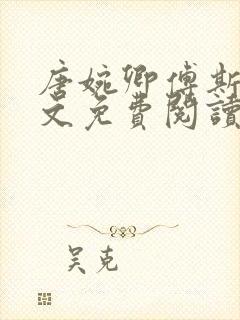 唐婉卿傅斯
文免費閱讀
吴克